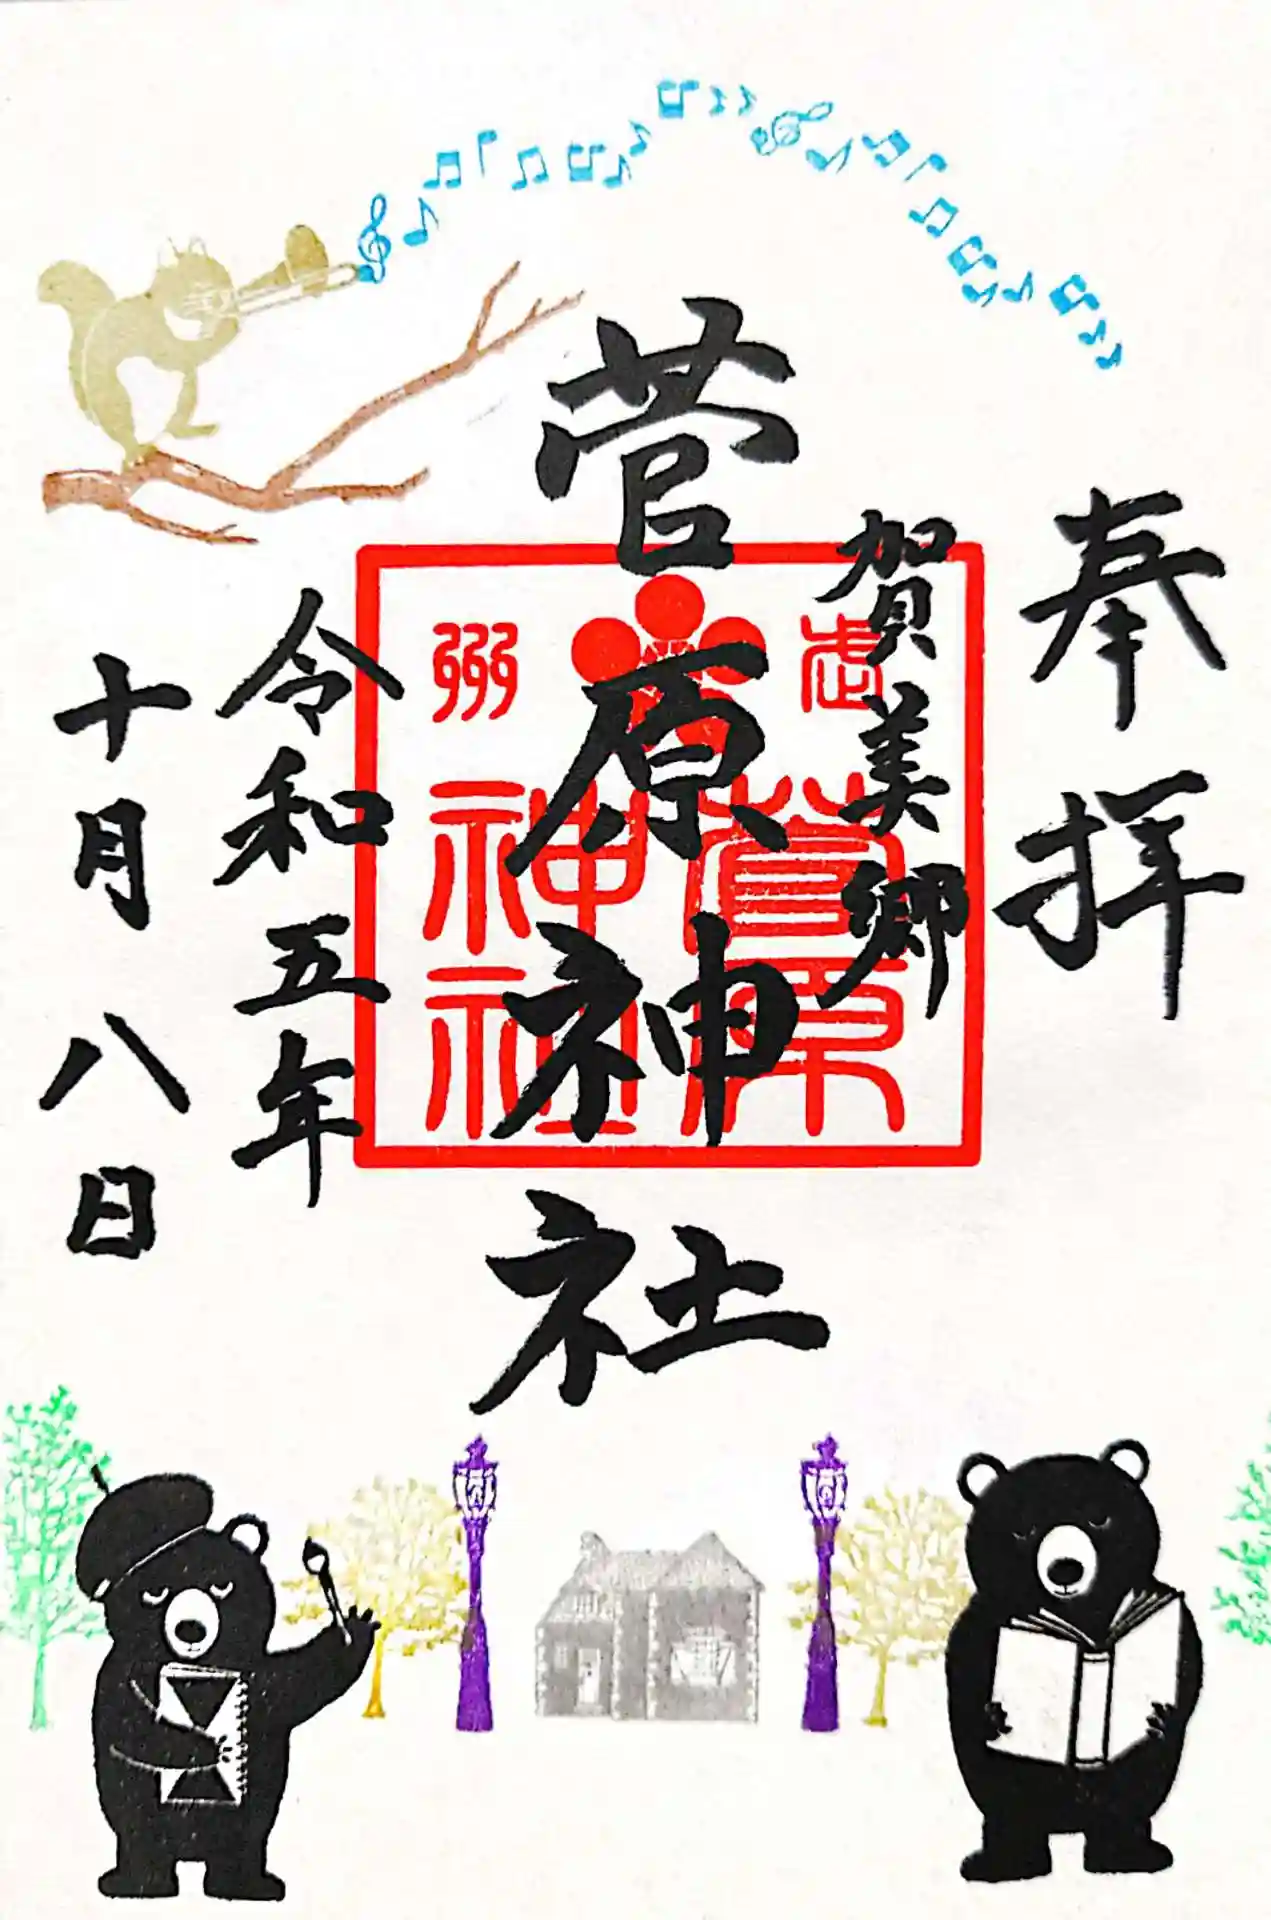 奉拝
賀美郷
菅原神社
令和五年
十月八日
武州
菅原
神社